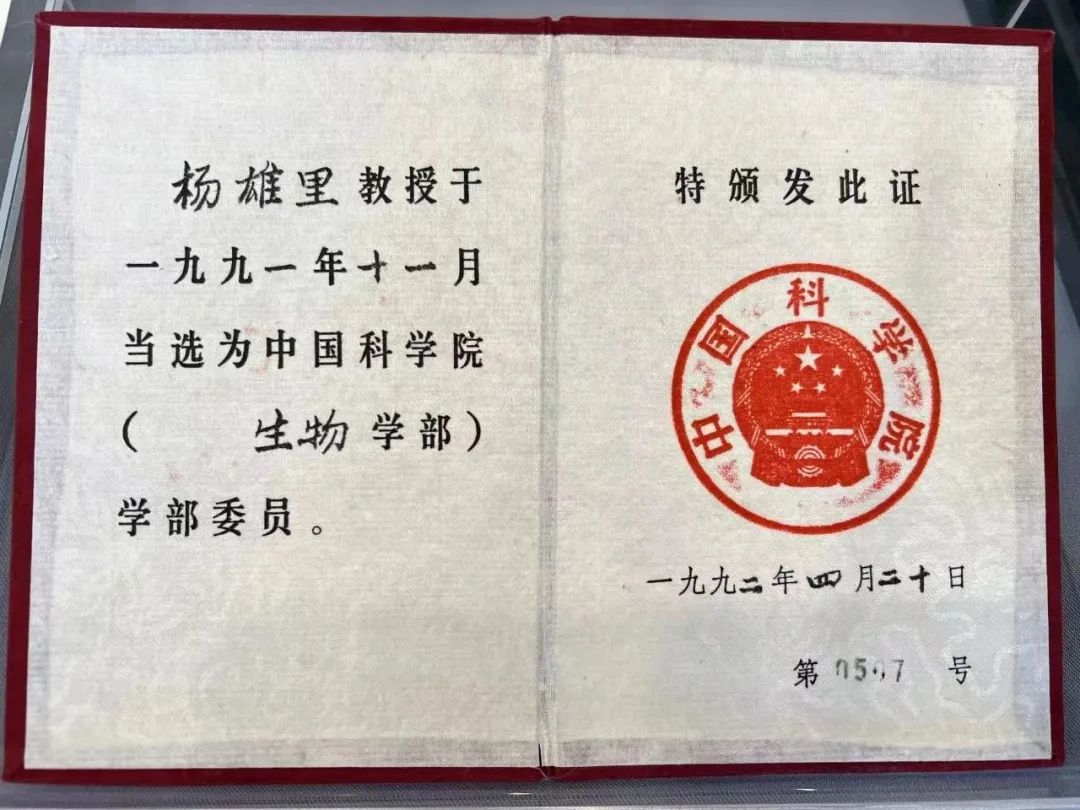 杨雄里教授于
一九九一年十一月
当选为中国科学院
(生物学部)
学部委员。
特颁发此证
中国科学院
一九九二年四月二十日
第 号